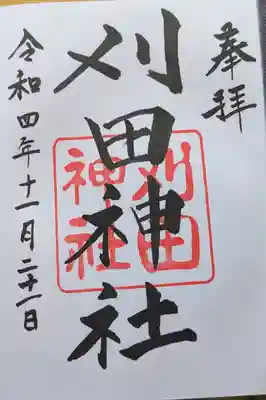 奉拝
刈田神社
刈田
神社
令和四年十一月二十一日